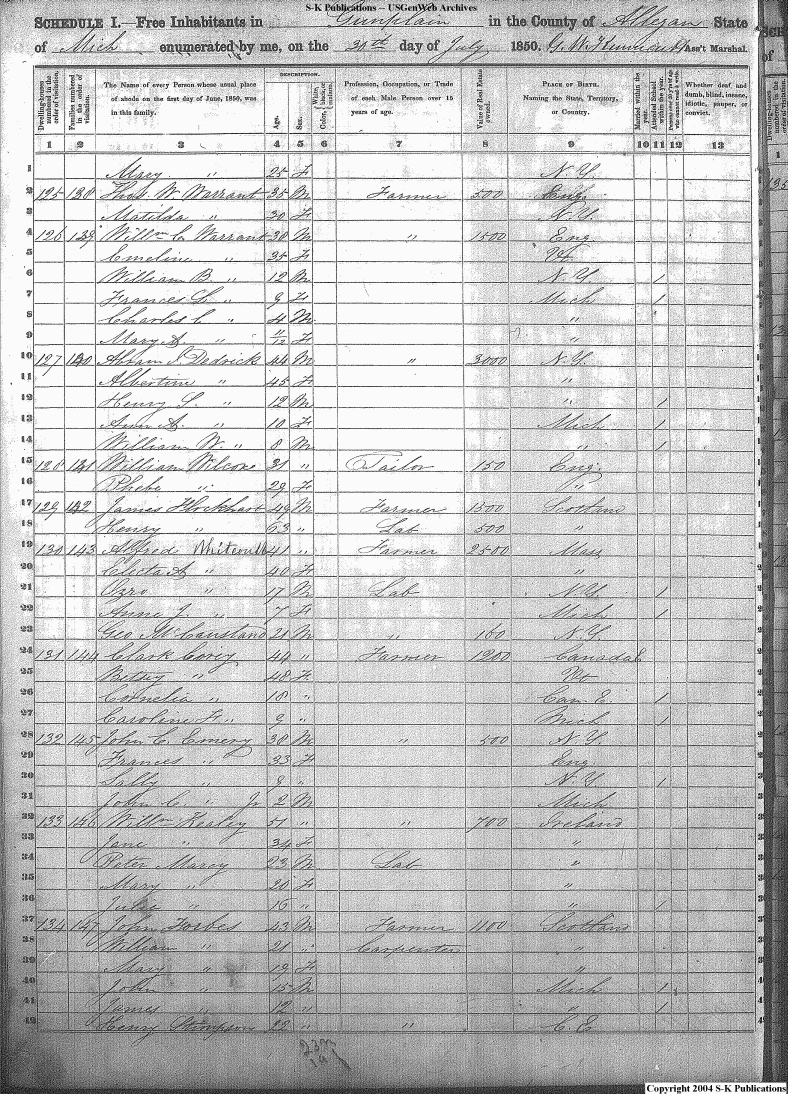 S-K Publications – USGenWeb Archives
SCHEDULE I.—Free Inhabitants in Gunplain in the County of Allegan State
of Mich enumerated by me, on the 31st day of July 1850. Ass't Marshal.
Dwelling-houses numbered in the order of visitation.
Families numbered in the order of visitation.
The Name of every Person whose usual place of abode on the first day of June, 1850, was in this family.
DESCRIPTION.
Age.
Sex.
White, black, or mulatto. Color
Profession, Occupation, or Trade of each Male Person over 15 years of age.
Value of Real Estate owned.
PLACE OF BIRTH. Naming the State, Territory, or Country.
Married within the year.
Attended School within the year.
Whether deaf and dumb, blind, insane, idiotic, pauper, or convict.
1 2 3 4 5 6 7 8 9 10 11 12 13
1 Mary " 25 F N.Y.
2 125 138 Thos. W. Warrant 35 M Farmer 500 Eng.
3 Matilda " 30 F N.Y.
4 126 139 Willm C. Warrant 38 M " 1500 Eng
5 Emeline " 35 F Vt
6 William B. " 12 M N.Y 1
7 Frances L. " 9 F Mich 1
8 Charles C. " 4 M "
9 Mary A. " 11/12 F "
10 127 140 Abram I. Dedrick 44 M " 3000 N.Y.
11 Albertine " 45 F "
12 Henry S. " 12 M " 1
13 Ann A. " 10 F Mich 1
14 William W. " 8 M " 1
15 128 141 William Wilcox 31 " Tailor 150 Eng.
16 Phebe " 29 F "
17 129 142 James Flockhart 49 M Farmer 1300 Scotland
18 Henry " 53 " Lab 500 "
19 130 143 Alfred 41 " Farmer 2500 Mass
20 Clista A " 40 F "
21 Ozro " 17 M Lab N.Y 1
22 Anne J. " 7 F Mich 1
23 Geo McCausland 21 M " 160 N.Y
24 131 144 Clark Corey 44 " Farmer 1200 Canada E
25 Betsy " 48 F Vt
26 Cornelia " 18 " Can. E. 1
27 Caroline F. " 9 " Mich 1
28 132 145 John C. Emery 38 M " 500 N.Y.
29 Frances " 33 F Eng.
30 Sally " 8 " N.Y 1
31 John C. " Jr 2 M Mich
32 133 146 Willm Kealey 51 " " 700 Ireland
33 Jane " 34 F "
34 Peter Marcy 23 M Lab "
35 Mary " 20 F "
36 Julia " 16 " " 1
37 134 147 John Forbes 43 M Farmer 1100 Scotland
38 William " 21 " Carpenter "
39 Mary " 19 F "
40 John " 15 M Mich 1
41 James " 12 " " 1
42 Henry Stimpson 22 " " C. E
Copyright 2004 S-K Publications